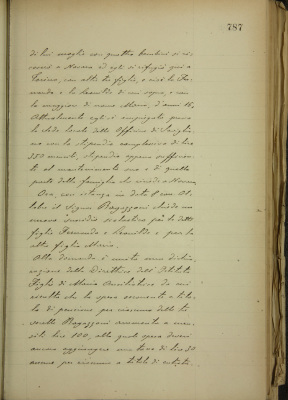 787
di lui moglie con quattro bambini si ri-
coverò a Novara ed egli si rifugiò qui a
Torino, con altre tre figlie, e cioè la Fer-
nanda e la Leonilde di cui sopra, e con
la maggiore di nome Maria, d'anni 16.
Attualmente egli è impiegato presso
la sede locale delle Officine di Savigliano
no con lo stipendio complessivo di lire
350 mensili, stipendio appena sufficien-
te al mantenimento suo e di quella
parte della famiglia che risiede a Novara.
Ora, con istanza in data 8 corr. Ot-
tobre il Signor Ragazzoni chiede un
annuo sussidio scolastico per le dette
figlie Fernanda e Leonilde e per la
altra figlia Maria.
Alla domanda è unita una dichia-
razione della Direttrice dell'Istituto
Figlie di Maria Ausiliatrice da cui
risulta che la spesa occorrente a tito-
lo di pensione per ciascuna delle tre
sorelle Ragazzoni ammonta a men-
sili lire 100, alla quale spesa devesi
ancora aggiungere una tassa di lire 50
annue per ciascuna a titolo di entrata.